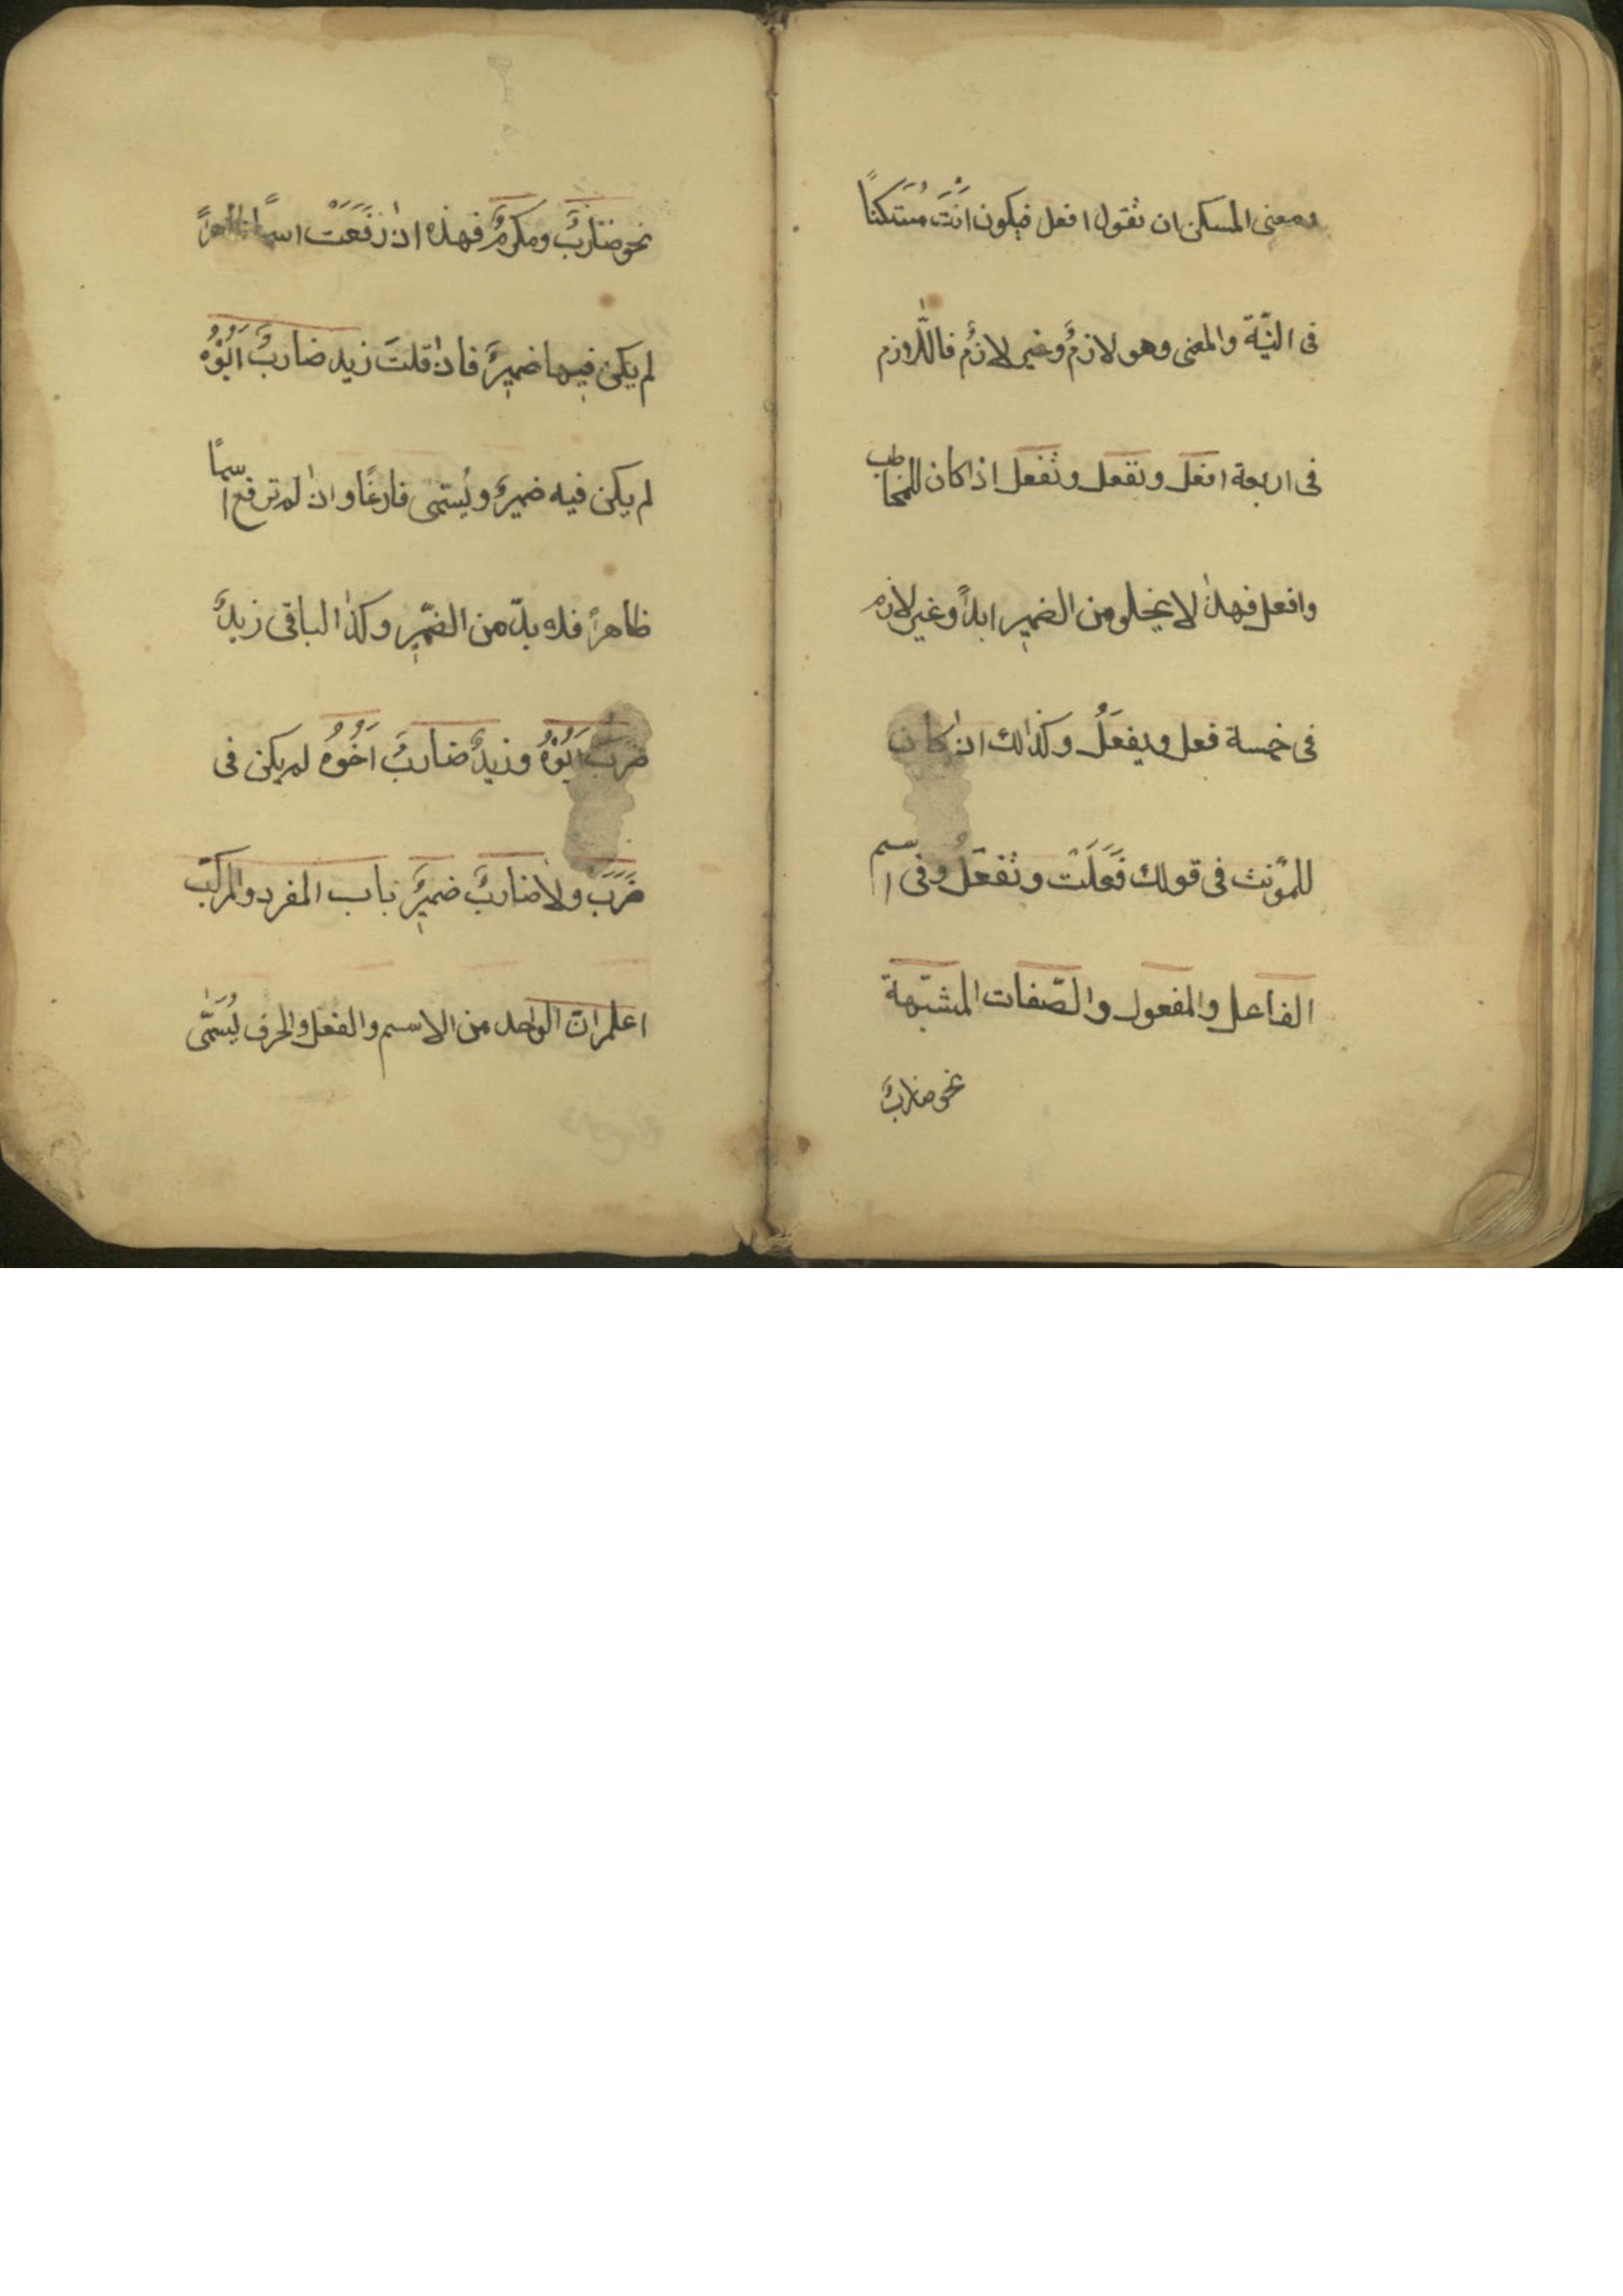 ومعنى المسكن ان تقول افعل فيكون اَنْتَ مُسْتَكنًا
فى النيّة والمعنى وهو لازمٌ وغير لازمٌ فاللازم
فى اربعة افعل ونفعل وتفعل اذا كان للمخاطب
وافعل فهذا لا يخلو من الضمير ابداً وغير لازم
فى خمسة فعل ويفعلُ وكذلك ان كان
للمؤنث فى قولك فَعَلَتْ وتفعلُ وفى اسم
الفاعل والمفعول والصّفات المشبّهة
نحو ضاربٌ
نحو ضاربٌ ومكرمٌ فهذه ان رَفَعَتْ اسمًا ظاهراً
لم يكن فيها ضميرٌ فان قلتَ زيد ضاربٌ اَبُوْهُ
لم يكن فيه ضميرٌ ويُسمّى فارغًا وان لم ترفع اسمًا
ظاهراً فلا بدّ من الضّمير وكذا الباقى زيدٌ
ضربَ اَبُوْهُ وزيدٌ ضاربٌ اَخُوُهُ لم يكن فى
ضَرَبَ ولا ضاربٌ ضميرٌ باب المفرد والمركّب
اعلم انّ الواحد من الاسم والفعل والحرف يُسَمّى